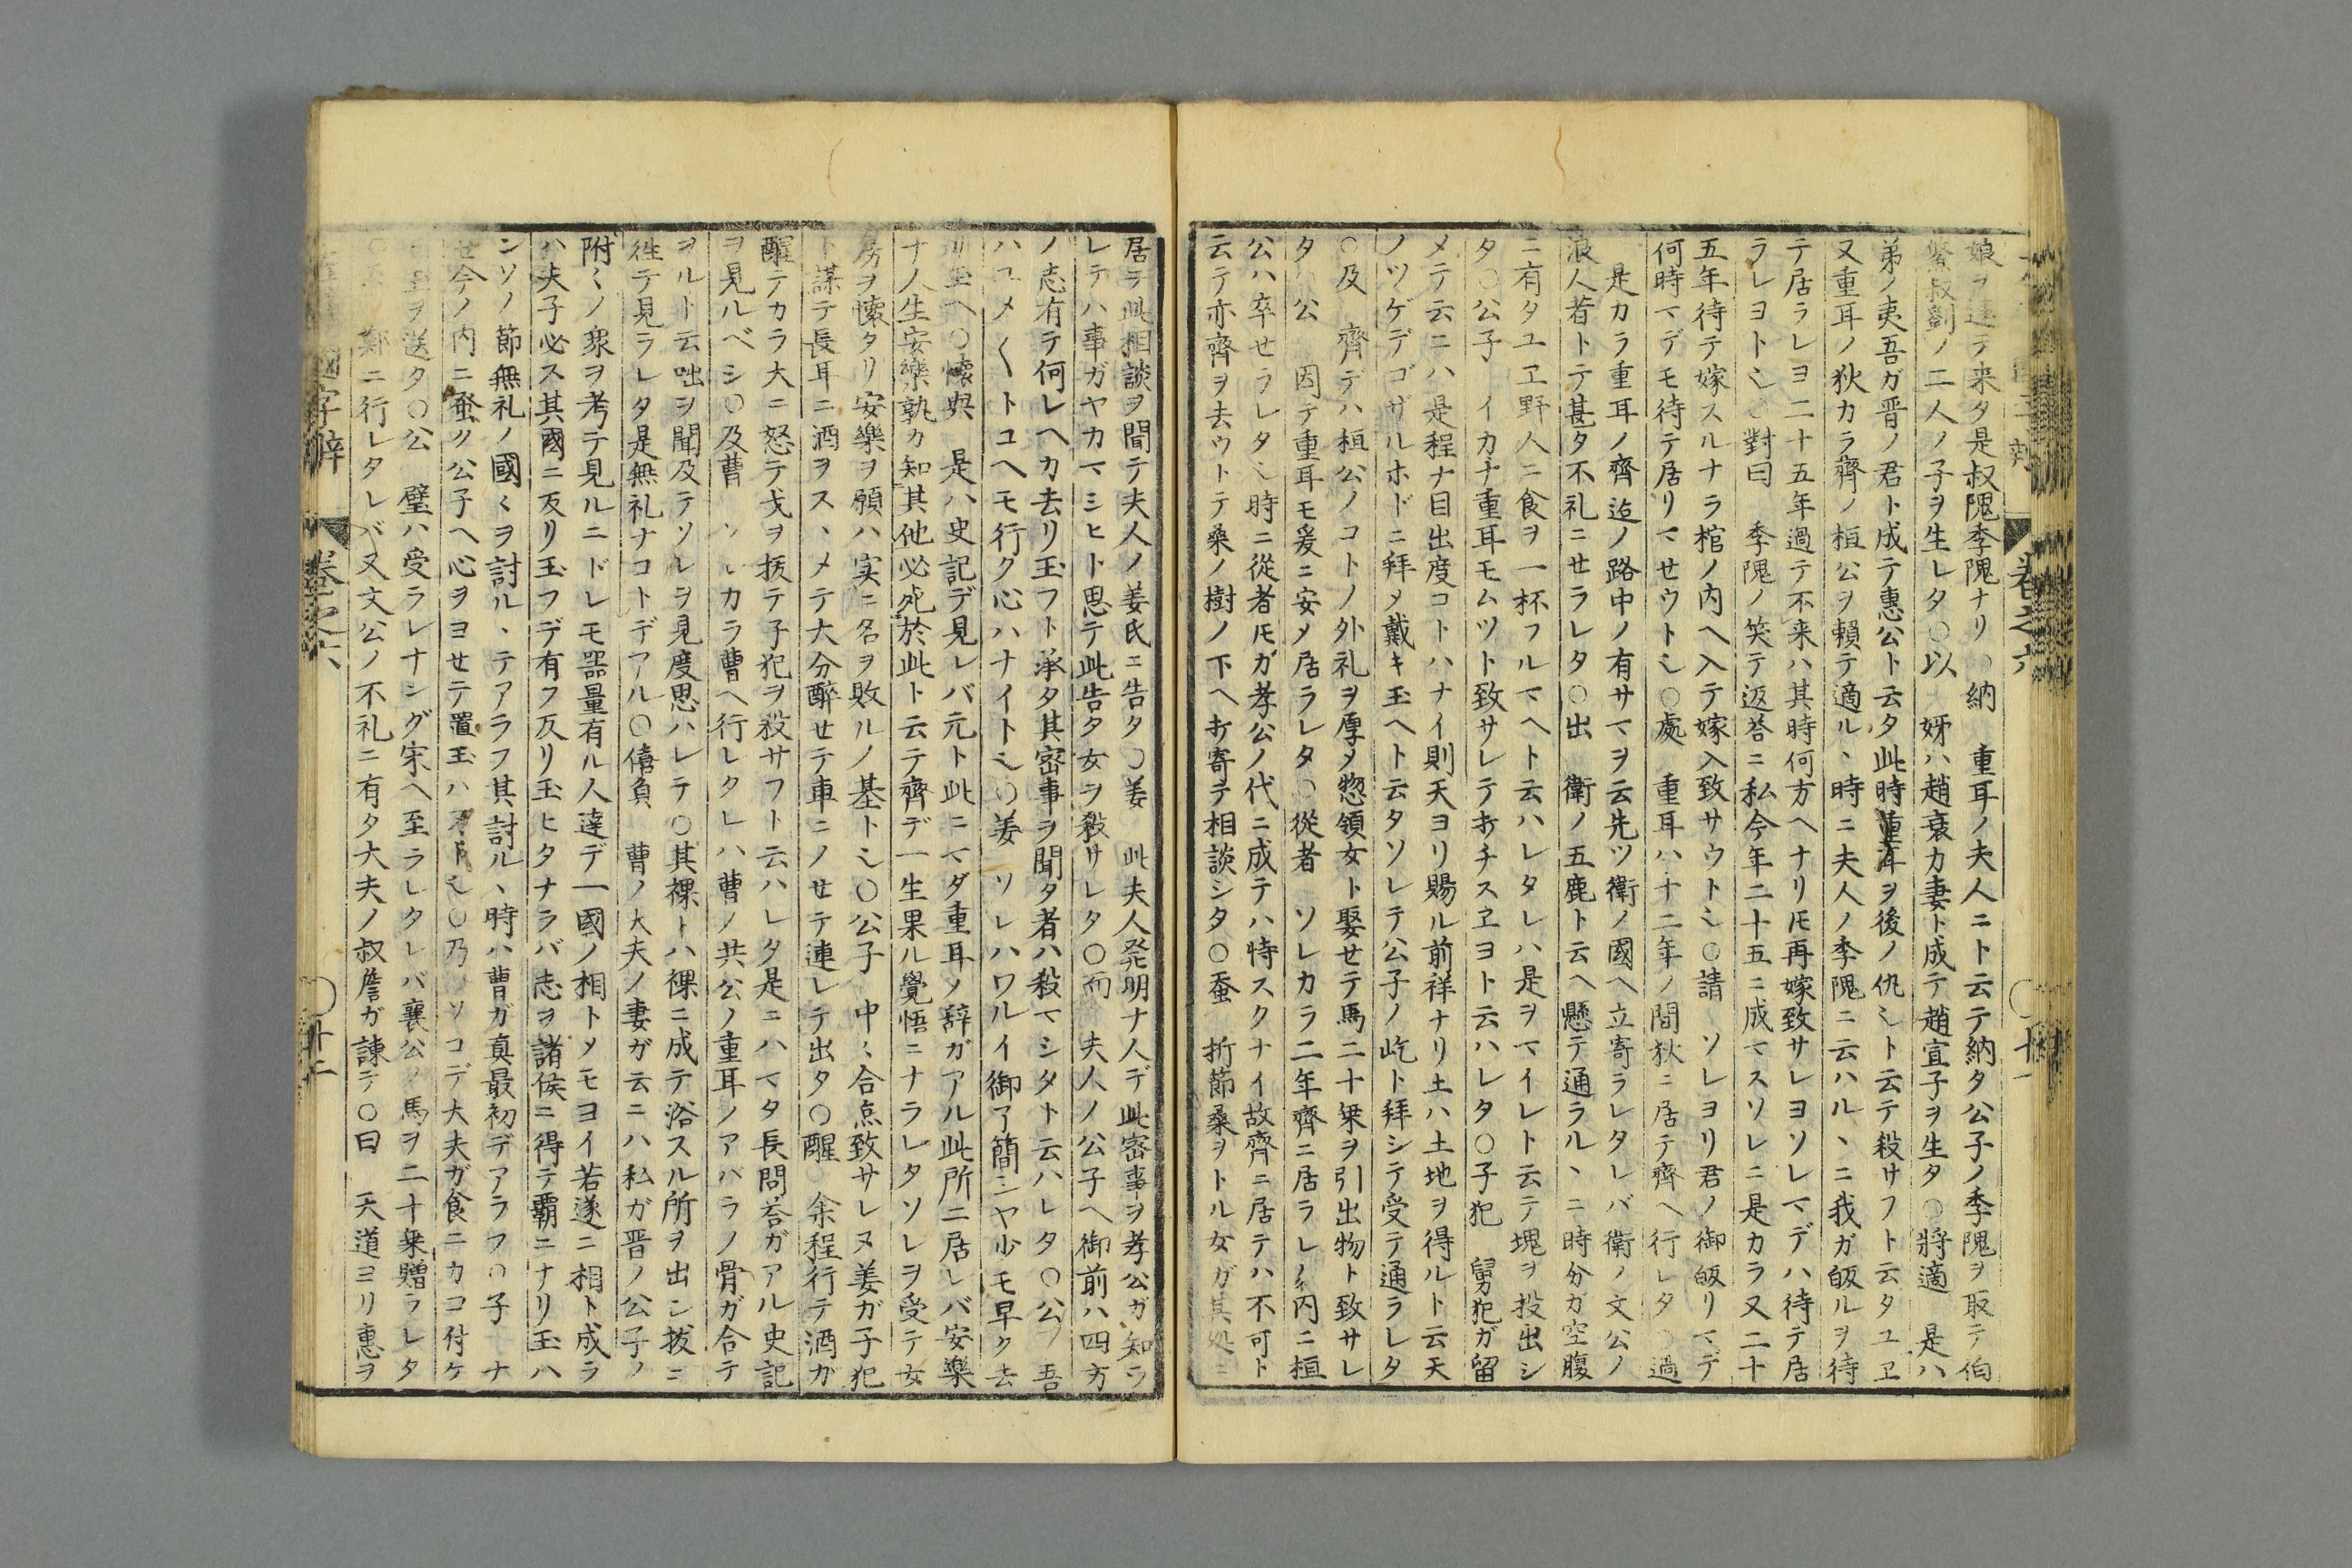 娘ヲ連テ来タ是叔隗季隗ナリ○納　重耳ノ夫人ニト云テ納タ公子ノ季隗ヲ取テ伯
叔劉ノ二人ノ子ヲ生レタ○以　妍ハ趙衰カ妻ト成テ趙宣子ヲ生タ○將適　是ハ
弟ノ夷吾ガ晋ノ君ト成テ惠公ト云タ此時重耳ヲ後ノ仇乄ト云テ殺サフト云タユヱ
又重耳ノ狄カラ齊ノ桓公ヲ頼テ適ルヽ時ニ夫人ノ季隗ニ云ハルヽニ我ガ皈ルヲ待
テ居ラレヨ二十五年過テ不来ハ其時何方ヘナリ𪜈再嫁致サレヨソレマデハ待テ居
ラレヨト乄○對曰　季隗ノ笑テ返荅ニ私今年二十五ニ成マスソレニ是カラ又二十
五年待テ嫁スルナラ棺ノ内ヘ入テ嫁入致サウト乄○請　ソレヨリ君ノ御皈リマデ
何時マデモ待テ居リマせウト乄○處　重耳ハ十二年ノ間狄ニ居テ齊ヘ行レタ○過
是カラ重耳ノ齊迄ノ路中ノ有サマヲ云先ツ衛ノ國ヘ立寄ラレタレバ衛ノ文公ノ
浪人者トテ甚タ不礼ニせラレタ○出　衛ノ五鹿ト云ヘ懸テ通ラルヽニ時分ガ空腹
ニ有タユヱ野人ニ食ヲ一杯フルマヘト云ハレタレハ是ヲマイレト云テ塊ヲ投出シ
タ○公子　イカナ重耳モムツト致サレテ打チスヱヨト云ハレタ○子犯　舅犯ガ留
メテ云ニハ是程ナ目出度コトハナイ則天ヨリ賜ル前祥ナリ土ハ土地ヲ得ルト云天
ノツゲデゴザルホドニ拜乄戴キ玉ヘト云タソレテ公子ノ屹ト拜シテ受テ通ラレタ
○及　齊デハ桓公ノコトノ外礼ヲ厚メ惣領女ト娶せテ馬二十乗ヲ引出物ト致サレ
タ　公　因テ重耳モ爰ニ安メ居ラレタ○從者　ソレカラ二年齊ニ居ラレノ内ニ桓
公ハ卒せラレタ乄時ニ從者𪜈ガ孝公ノ代ニ成テハ恃スクナイ故齊ニ居テハ不可ト
云テ亦齊ヲ去ウトテ桑ノ樹ノ下ヘ打寄テ相談シタ○蚕　折節桑ヲトル女ガ其処ニ
卷之六
十一
居テ此相談ヲ聞テ夫人ノ姜氏ニ告タ○姜　此夫人発明ナ人デ此密事ヲ孝公ガ知ラ
レテハ事ガヤカマシヒト思テ此告タ女ヲ殺サレタ○而　夫人ノ公子ヘ御前ハ四方
ノ志有テ何レヘカ去リ玉フト承タ其密事ヲ聞タ者ハ殺マシタト云ハレタ○公　吾
ハユメ〱トコヘモ行ク心ハナイト乄○姜　ソレハワルイ御了簡シヤ少モ早ク去
リ玉ヘ○懐與　是ハ史記デ見レバ元ト此ニマダ重耳ノ辞ガアル此所ニ居レバ安樂
ナ人生安樂孰カ知其他必死於此ト云テ齊デ一生果ル覺悟ニナラレタソレヲ受テ女
房ヲ懐タリ安樂ヲ願ハ実ニ名ヲ敗ルノ基ト乄○公子　中〻合点致サレヌ姜ガ子犯
ト謀テ長耳ニ酒ヲスヽメテ大分醉せテ車ニノせテ連レテ出タ○醒　余程行テ酒ガ
醒テカラ大ニ怒テ戈ヲ抜テ子犯ヲ殺サフト云ハレタ是ニハマタ長問荅ガアル史記
ヲ見ルベシ○及曹　ソレカラ曹ヘ行レタレハ曹ノ共公ノ重耳ノアバラノ骨ガ合テ
ヲルト云咄ヲ聞及テソレヲ見度思ハレテ○其裸トハ裸ニ成テ浴スル所ヲ出シ抜ニ
徃テ見ラレタ是無礼ナコトデアル○僖負　曹ノ大夫ノ妻ガ云ニハ私ガ晋ノ公子ノ
附〻ノ衆ヲ考テ見ルニドレモ器量有ル人達デ一國ノ相トメモヨイ若遂ニ相ト成ラ
ハ夫子必ス其國ニ反リ玉フデ有フ反リ玉ヒタナラバ志ヲ諸侯ニ得テ覇ニナリ玉ハ
ンソノ節無礼ノ國〻ヲ討ルヽテアラフ其討ルヽ時ハ曹ガ真最初デアラフ○子　ナ
せ今ノ内ニ蚤ク公子ヘ心ヲヨせテ置玉ハ　ト乄○乃　ソコデ大夫ガ食ニカコ付ケ
玉ヲ送タ○公　璧ハ受ラレナンダ宋ヘ至ラレタレバ襄公ノ馬ヲ二十乗贈ラレタ
鄭ニ行レタレバ又文公ノ不礼ニ有タ大夫ノ叔詹ガ諌テ○曰　天道ヨリ惠ヲ
國字辯
卷之六
十二